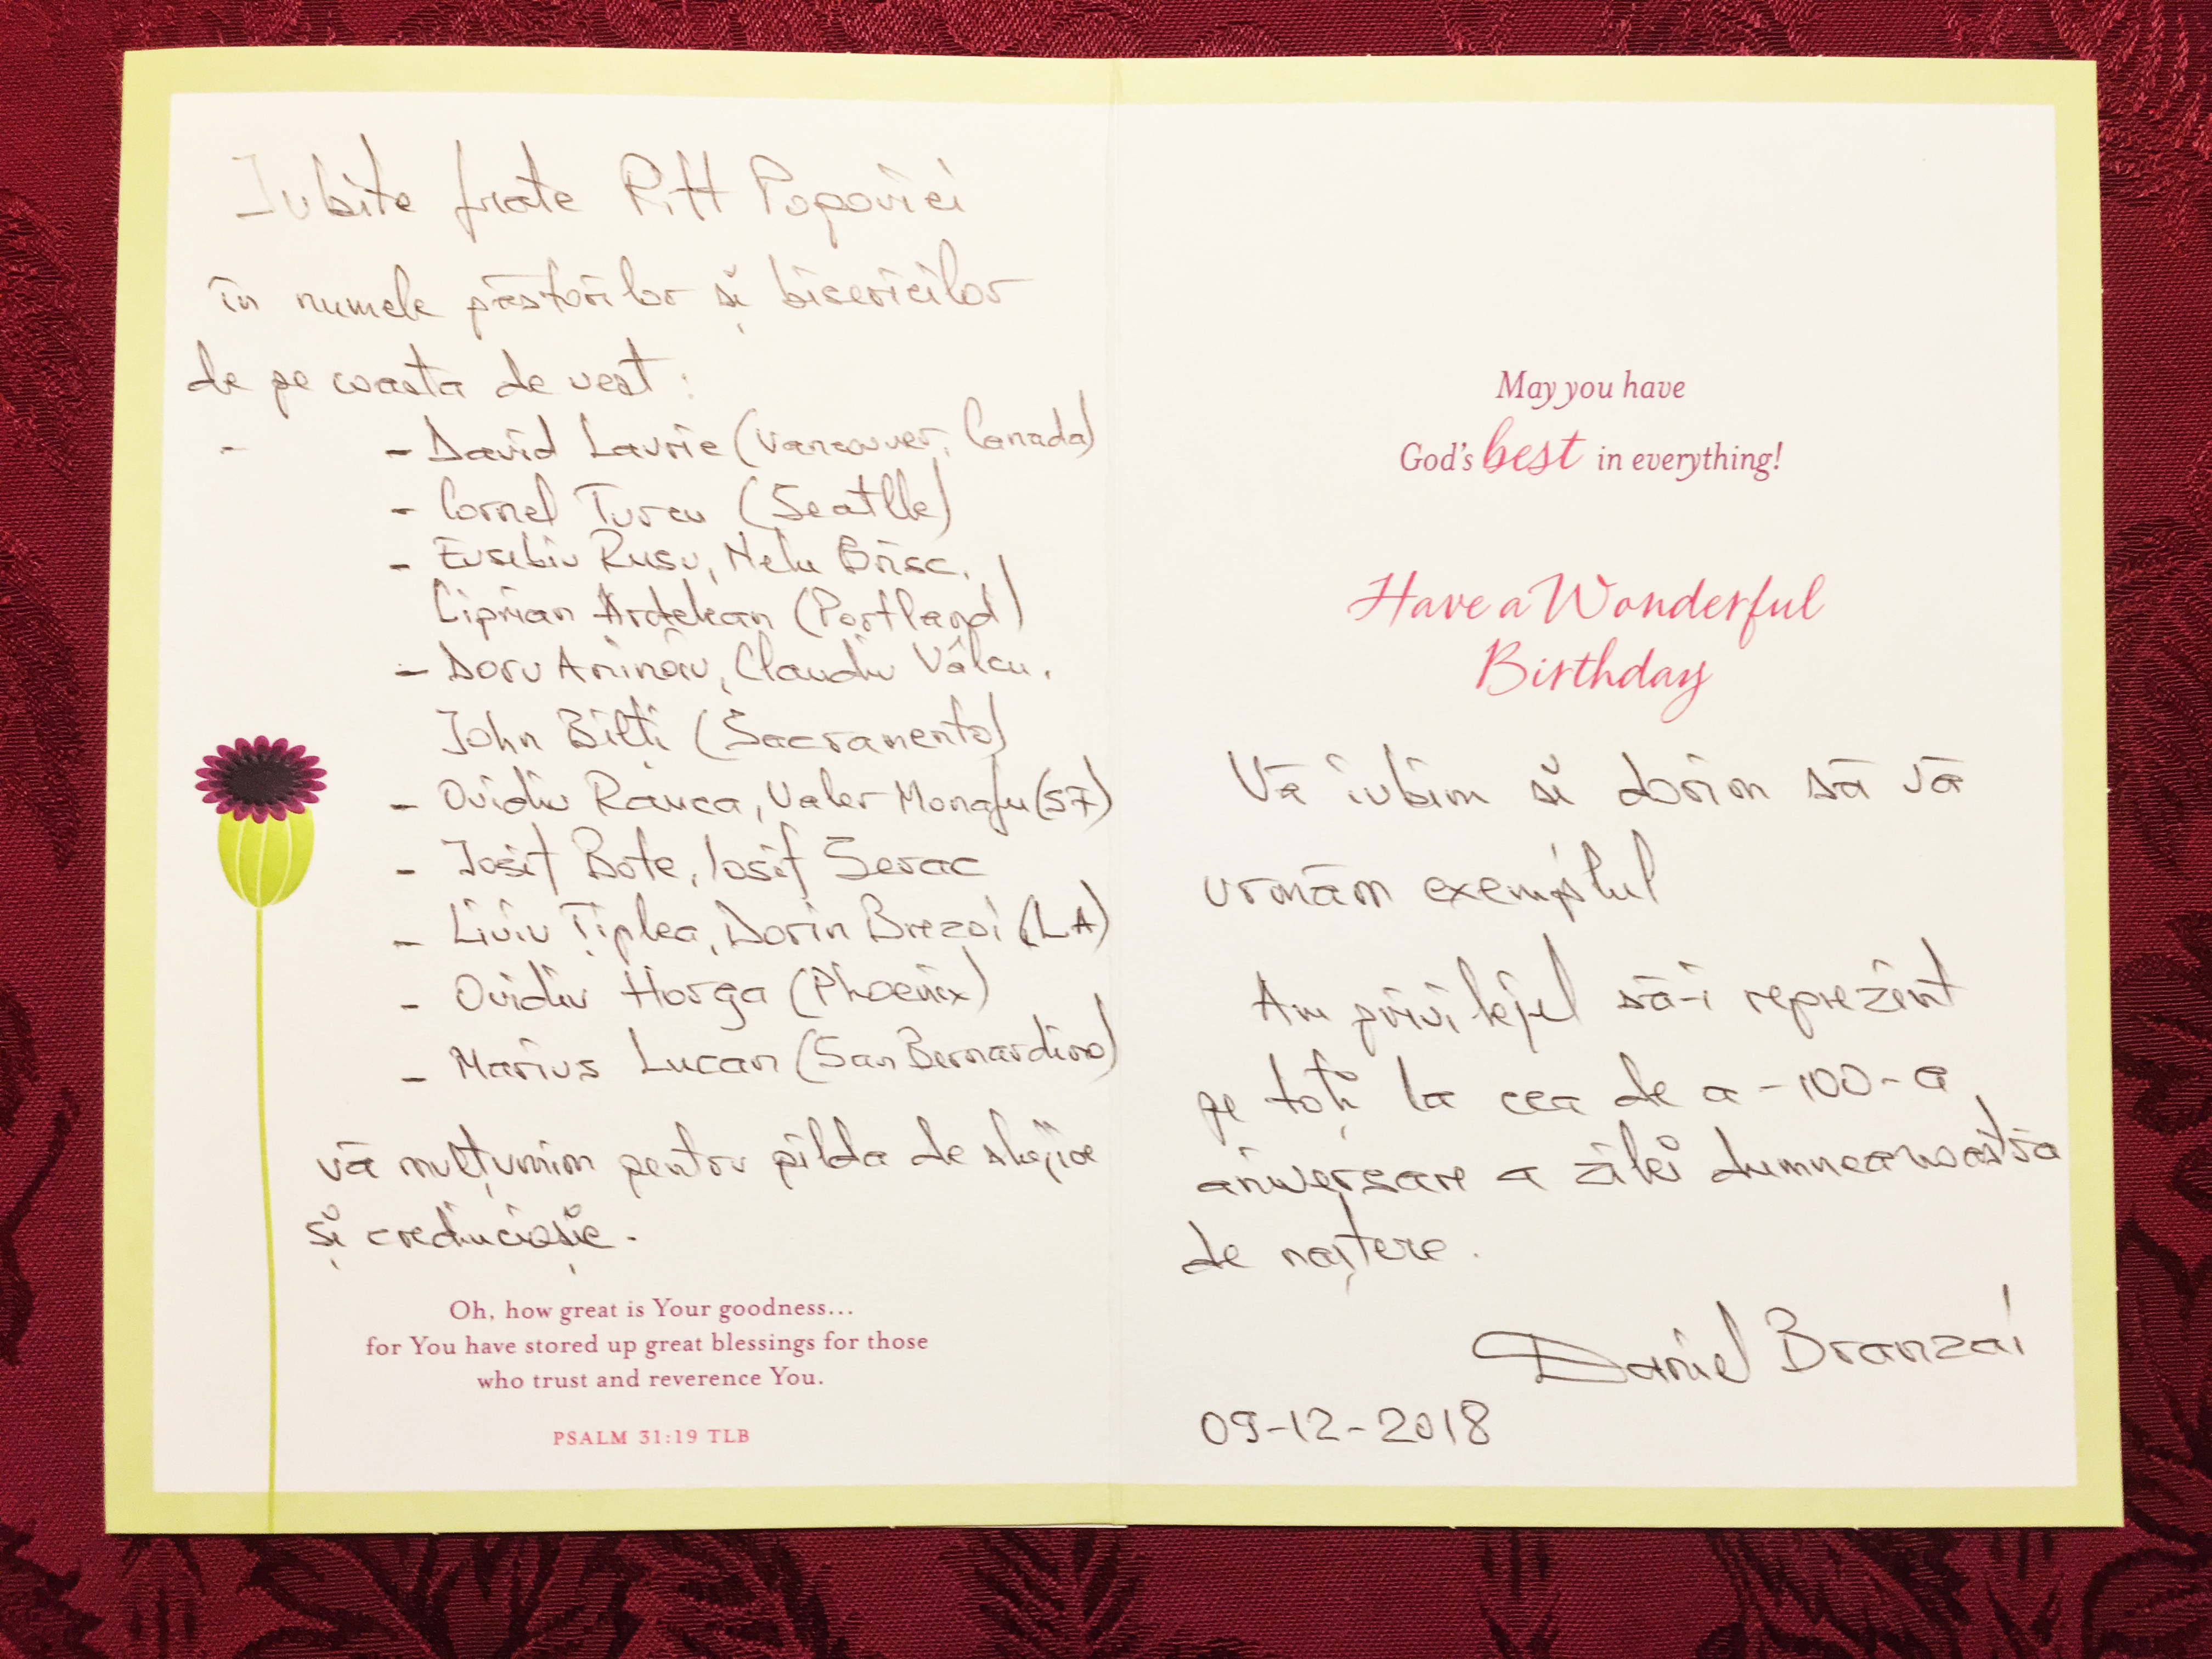 Iubite frate Pitt Popovici
în numele păstorilor și bisericilor
de pe coasta de vest:
- - David Laurie (Vancouver, Canada)
- Cornel Turcu (Seatlle)
- Eusebiu Rusu, Nelu Brisc,
Ciprian Ardelean (Portland)
- Doru Aninoiu, Claudiu Vâlcu,
John Bilți (Sacramento)
- Ovidiu Rauca, Valer (SF)
- Iosif Bote, Iosif Serac
- Liviu Țiplea, Dorin Brezoi (LA)
- Ovidiu Horga (Phoenix)
- Marius Lucan (San Bernardino)
vă mulțumim pentru pilda de slujire
și credincioșie.
Oh, how great is Your goodness...
for You have stored up great blessings for those
who trust and reverence You.
PSALM 31:19 TLB
May you have
God's best in everything!
Have a Wonderful
Birthday
Vă iubim și dorim să vă
urmăm exemplul
Am privilejul să-i reprezint
pe toți la cea de a -100-a
aniversare a zilei dumneavoastră
de naștere.
Daniel Branzai
09-12-2018